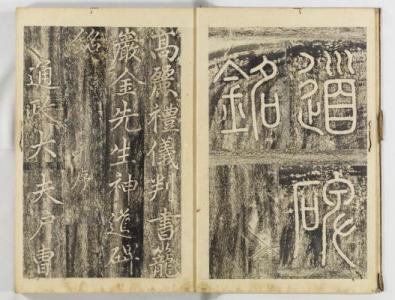 道碑
銘
高麗禮儀判書籠
巖金先生神道碑
銘 序
通政大夫戶曹